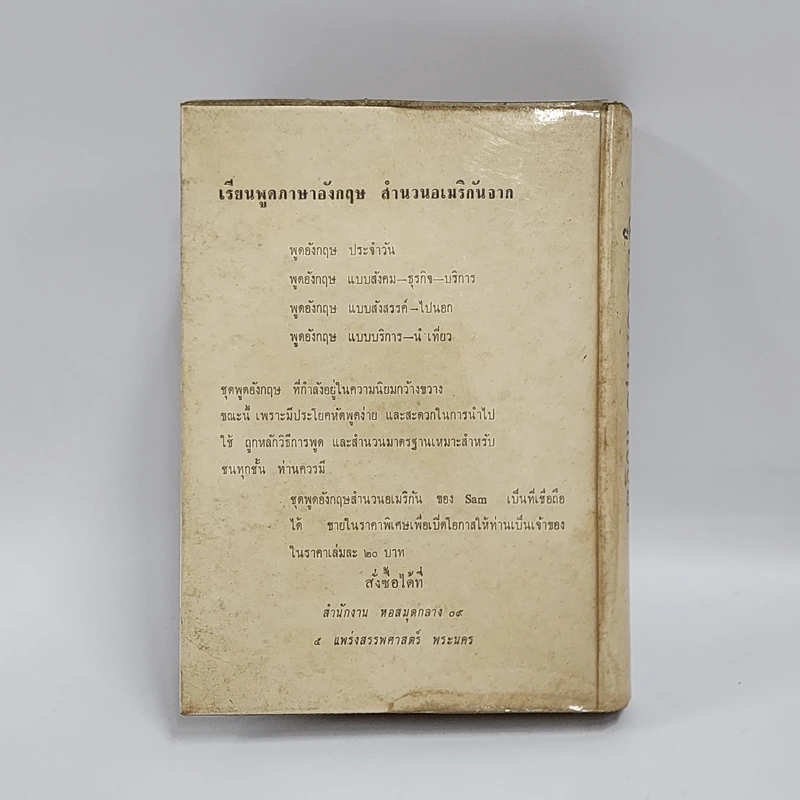 เรียนพูดภาษาอังกฤษ สำนวนอเมริกันจาก
พูดอังกฤษ ประจำวัน
พูดอังกฤษ แบบสังคม—ธุรกิจ—บริการ
พูดอังกฤษ แบบสังสรรค์—ไปนอก
พูดอังกฤษ แบบบริการ—นำเที่ยว
ชุดพูดอังกฤษ ที่กำลังอยู่ในความนิยมกว้างขวาง
ขณะนี้ เพราะมีประโยคหัดพูดง่าย และสะดวกในการนำไป
ใช้ ถูกหลักวิธีการพูด และสำนวนมาตรฐานเหมาะสำหรับ
ชนทุกชั้น ท่านควรมี
ชุดพูดอังกฤษสำนวนอเมริกัน ของ Sam เป็นที่เชื่อถือ
ได้ ขายในราคาพิเศษเพื่อเปิดโอกาสให้ท่านเป็นเจ้าของ
ในราคาเล่มละ ๒๐ บาท
สั่งซื้อได้ที่
สำนักงาน หอสมุดกลาง ๐๙
๕ แพร่งสรรพศาสตร์ พระนคร